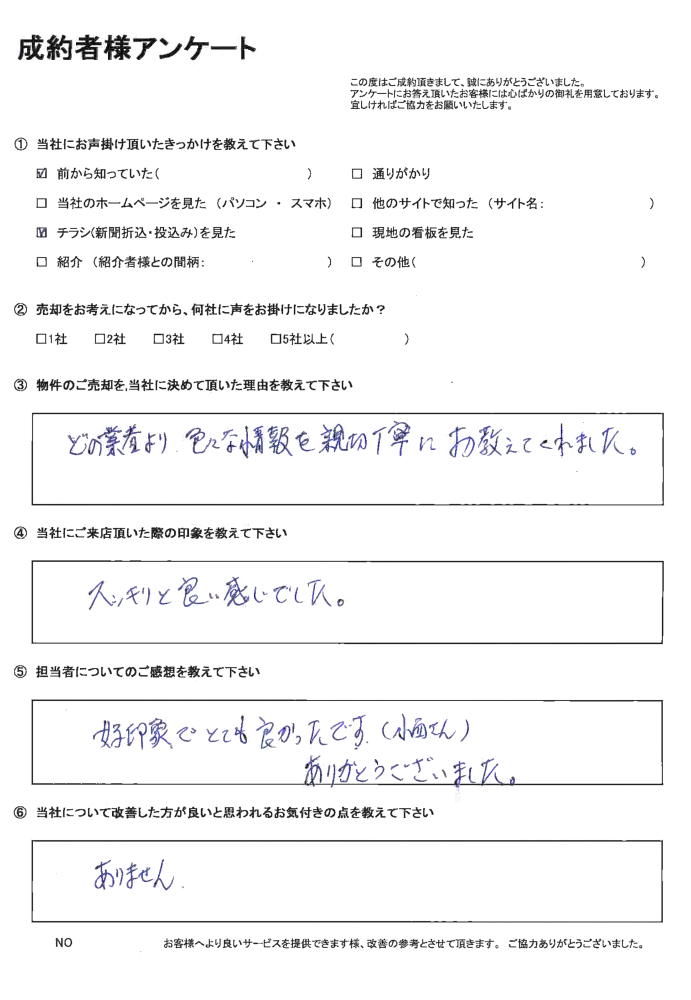 成約者様アンケート
この度はご成約頂きまして、誠にありがとうございました。
アンケートにお答え頂いたお客様には心ばかりの御礼を用意しております。
宜しければご協力をお願いいたします。
① 当社にお声掛け頂いたきっかけを教えて下さい
☑ 前から知っていた( )
□ 通りがかり
□ 当社のホームページを見た (パソコン ・ スマホ)
□ 他のサイトで知った (サイト名: )
☑ チラシ(新聞折込・投込み)を見た
□ 現地の看板を見た
□ 紹介 (紹介者様との間柄: )
□ その他( )
② 売却をお考えになってから、何社に声をお掛けになりましたか？
□1社 □2社 □3社 □4社 □5社以上( )
③ 物件のご売却を,当社に決めて頂いた理由を教えて下さい
どの業者より 色々な情報を親切丁寧にお教えてくれました。
④ 当社にご来店頂いた際の印象を教えて下さい
スッキリと良い感じでした。
⑤ 担当者についてのご感想を教えて下さい
好印象でとても良かったです.(小西さん)
ありがとうございました。
⑥ 当社について改善した方が良いと思われるお気付きの点を教えて下さい
ありません.
NO
お客様へより良いサービスを提供できます様、改善の参考とさせて頂きます。 ご協力ありがとうございました。